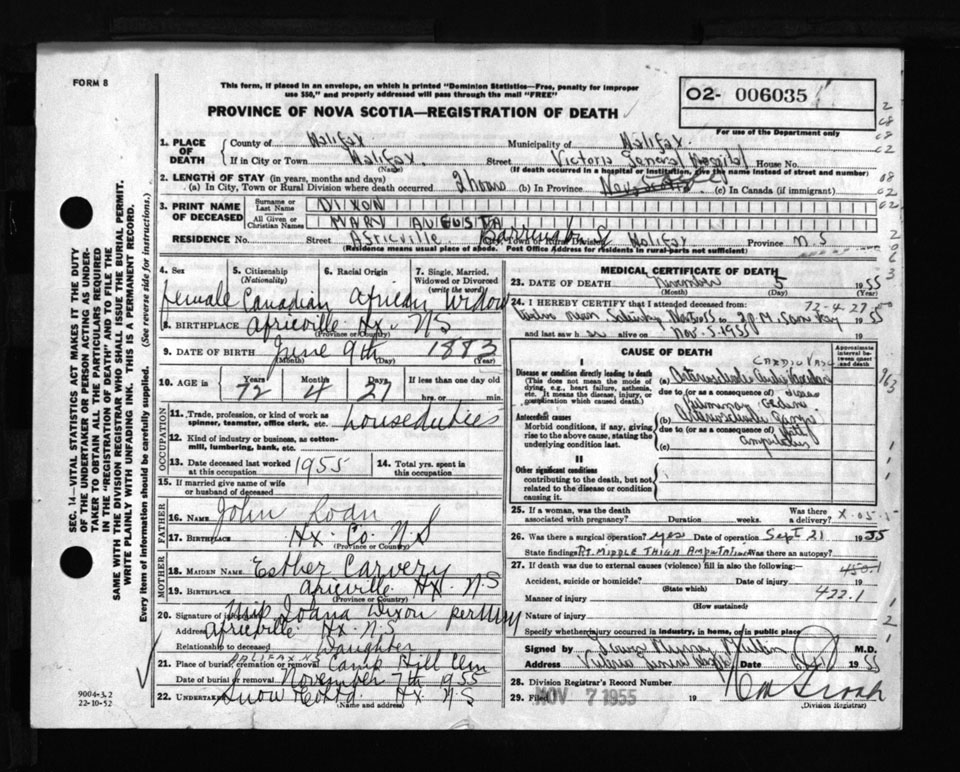 FORM 8
This form, if placed in an envelope, on which is printed "Dominion Statistics—Free, penalty for improper
use $50," and properly addressed will pass through the mail "FREE"
PROVINCE OF NOVA SCOTIA—REGISTRATION OF DEATH
02- 006035
For use of the Department only
1. PLACE OF DEATH
County of Halifax Municipality of Halifax
If in City or Town Halifax (Name) Street Victoria General Hospital House No.
(If death occurred in a hospital or institution, give the name instead of street and number)
2. LENGTH OF STAY (in years, months and days)
(a) In City, Town or Rural Division where death occurred 2 hours (b) In Province (c) In Canada (if immigrant)
3. PRINT NAME OF DECEASED
Surname or Last Name DIXON
All Given or Christian Names MARY AUGUSTA
RESIDENCE No. Street Africville Barrington St City, Town or Rural Division Halifax Province N.S
(Residence means usual place of abode. Post Office Address for residents in rural parts not sufficient)
4. Sex
5. Citizenship (Nationality)
6. Racial Origin
7. Single, Married, Widowed or Divorced (write the word)
female Canadian African Widow
8. BIRTHPLACE Africville Hx. N.S
(Province or Country)
9. DATE OF BIRTH June 9th 1883
(Month) (Day) (Year)
10. AGE in Years Months Days If less than one day old
72 4 27 hrs. or min.
OCCUPATION
11. Trade, profession, or kind of work as
spinner, teamster, office clerk, etc. house duties
12. Kind of industry or business, as cotton-
mill, lumbering, bank, etc.
13. Date deceased last worked at this occupation 1955
14. Total yrs. spent in this occupation
15. If married give name of wife
or husband of deceased
FATHER
16. NAME John Roan
17. BIRTHPLACE Hx. Co. N S
(Province or Country)
MOTHER
18. MAIDEN NAME Esther Carvery
19. BIRTHPLACE Africville Hx. N.S
(Province or Country)
20. Signature of informant Dixon
Address Africville Hx. N.S
Relationship to deceased Daughter
HALIFAX N.S
21. Place of burial, cremation or removal Camp Hill Cem
Date of burial or removal November 7th 1955
22. Undertaker Snow Co Ltd Hx N S
(Name and address)
MEDICAL CERTIFICATE OF DEATH
23. DATE OF DEATH November 5 1955
(Month) (Day) (Year)
72-4-27
24. I HEREBY CERTIFY that I attended deceased from:
Twelve noon Saturday Nov 5 1955 to 2 P.M. Same Day 1955
and last saw h er on Nov. 5. 1955
CAUSE OF DEATH
Approximate interval between onset and death
I
Disease or condition directly leading to death
(This does not mean the mode of
dying, e.g., heart failure, asthenia,
etc. It means the disease, injury, or
complication which caused death.)
(a) Arteriosclerotic
due to (or as a consequence of)
Antecedent causes
Morbid conditions, if any, giving
rise to the above cause, stating the
underlying condition last.
(b)
due to (or as a consequence of)
(c)
II
Other significant conditions
contributing to the death, but not
related to the disease or condition
causing it.
25. If a woman, was the death
associated with pregnancy? Duration weeks. Was there
a delivery? X-05-5
26. Was there a surgical operation? yes Date of operation Sept 21 1955
State findings RT. MIDDLE THIGH AMPUTATION Was there an autopsy?
27. If death was due to external causes (violence) fill in also the following:—
450.1
Accident, suicide or homicide? Date of injury 19
(State which)
422.1
Manner of injury
(How sustained)
Nature of injury
Specify whether injury occurred in industry, in home, or in public place
Signed by Murray M.D.
Address Victoria General Hospital Date 1955
28. Division Registrar's Record Number
29. Filed NOV 7 1955 19
(Division Registrar)
SEC. 14—VITAL STATISTICS ACT MAKES IT THE DUTY
OF THE UNDERTAKER OR PERSON ACTING AS UNDER-
TAKER TO OBTAIN ALL THE PARTICULARS REQUIRED
IN THE "REGISTRATION OF DEATH" AND TO FILE THE
SAME WITH THE DIVISION REGISTRAR WHO SHALL ISSUE THE BURIAL PERMIT.
WRITE PLAINLY WITH UNFADING INK. THIS IS A PERMANENT RECORD.
Every item of information should be carefully supplied. (See reverse side for instructions.)
9004-3.2
22-10-52